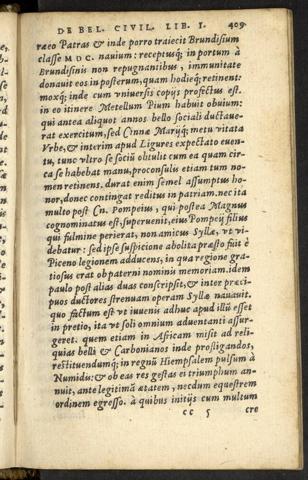 DE BEL. CIVIL. LIB. I. 409
raeo Patras & inde porro traiecit Brundisium
classe M D C. nauium : receptusq; in portum à
Brundisinis non repugnantibus , immunitate
donauit eos in posterum, quam hodieq; retinent:
moxq; inde cum vniuersis copijs profectus est.
in eo itinere Metellum Pium habuit obuium:
qui antea aliquot annos bello sociali ductaue-
rat exercitum, sed Cinnæ Marijq; metu vitata
Vrbe, & interim apud Ligures expectato euen-
tu, tunc vltro se sociũ obtulit cum ea quam cir-
ca se habebat manu, proconsulis etiam tum no-
men retinens. durat enim semel assumptus ho-
nor, donec contingat reditus in patriam. nec ita
multo post Cn. Pompeius , qui postea Magnus
cognominatus est, superuenit, eius Pompeij filius
qui fulmine perierat, non amicus Syllæ, vt vi-
debatur : sed ipse suspicione abolita præsto fuit è
Piceno legionem adducens, in qua regione gra-
tiosus erat ob paterni nominis memoriam. idem
paulo post alias duas conscripsit, & inter præci-
puos ductores strenuam operam Syllæ nauauit.
quo factum est vt iuuenis adhuc apud illũ esset
in pretio, ita vt soli omnium aduentanti assur-
geret. quem etiam in Africam misit ad reli-
quias belli & Carbonianos inde profligandos,
restituendumq; in regnũ Hiempsalem pulsum à
Numidis: & ob eas res gestas ei triumphum an-
nuit, ante legitimã ætatem , necdum equestrem
ordinem egresso. à quibus initijs cum multum
cc 5 cre